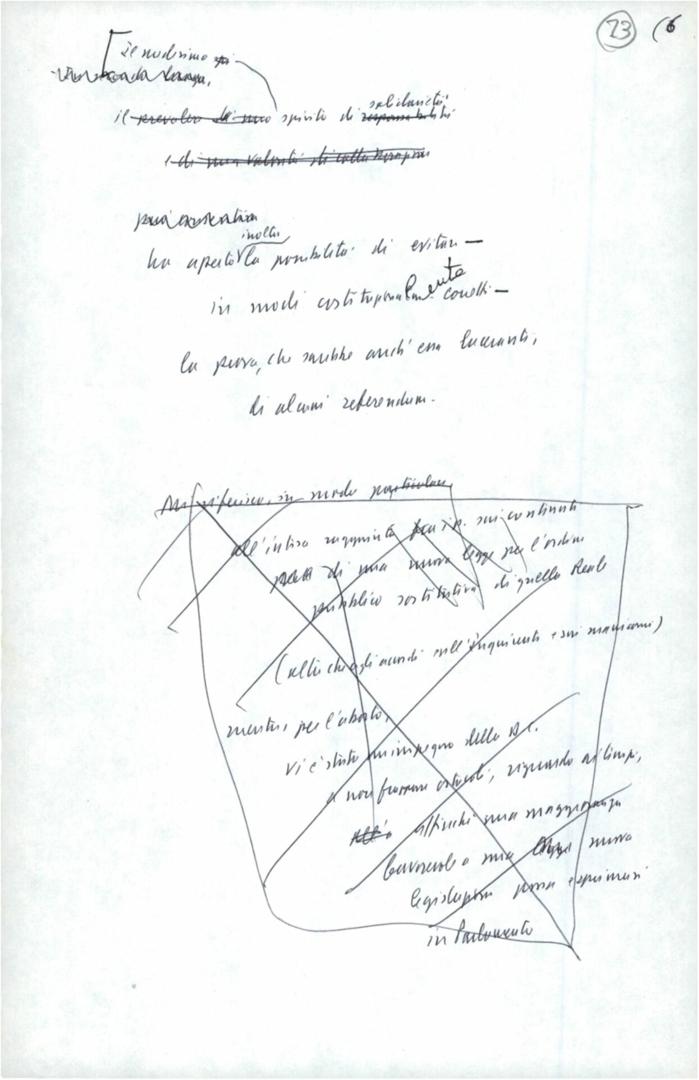 23 (6
il medesimo
il prevalere di uno spirito di solidarietà responsabilità
e di una volontà di collaborazione
ha aperto inoltre la possibilità di evitare –
in modi costituzionalmente corretti –
la prova, che sarebbe anch'essa lacerante,
di alcuni referendum.
Mi riferisco, in modo particolare
all'intesa raggiunta sui contenuti
di una nuova legge per l'ordine
pubblico sostitutiva di quella Reale
(oltre che agli accordi sull'inquirente e sui manicomi)
mentre, per l'aborto,
vi è stato un impegno della D.C.
a non frapporre ostacoli, riguardo ai tempi,
affinché una maggioranza
favorevole a una legge nuova
legislazione possa esprimersi
in Parlamento